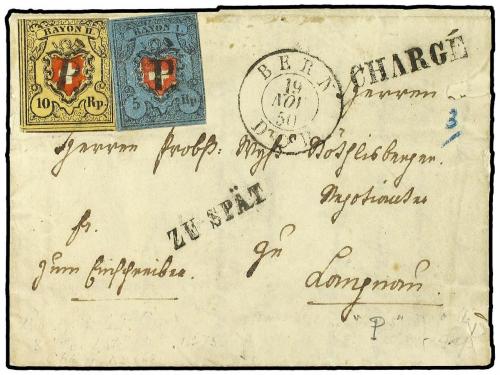 RAYON II. RAYON I.
P P
10 Rp. 5 Rp.
BERN
19
NOV
50
CHARGÉ
Herren
3
Herren Probst, Wyß
ZU SPÄT
Negotianten
fr.
zu
zum Einschreiben
Langnau.
"P"